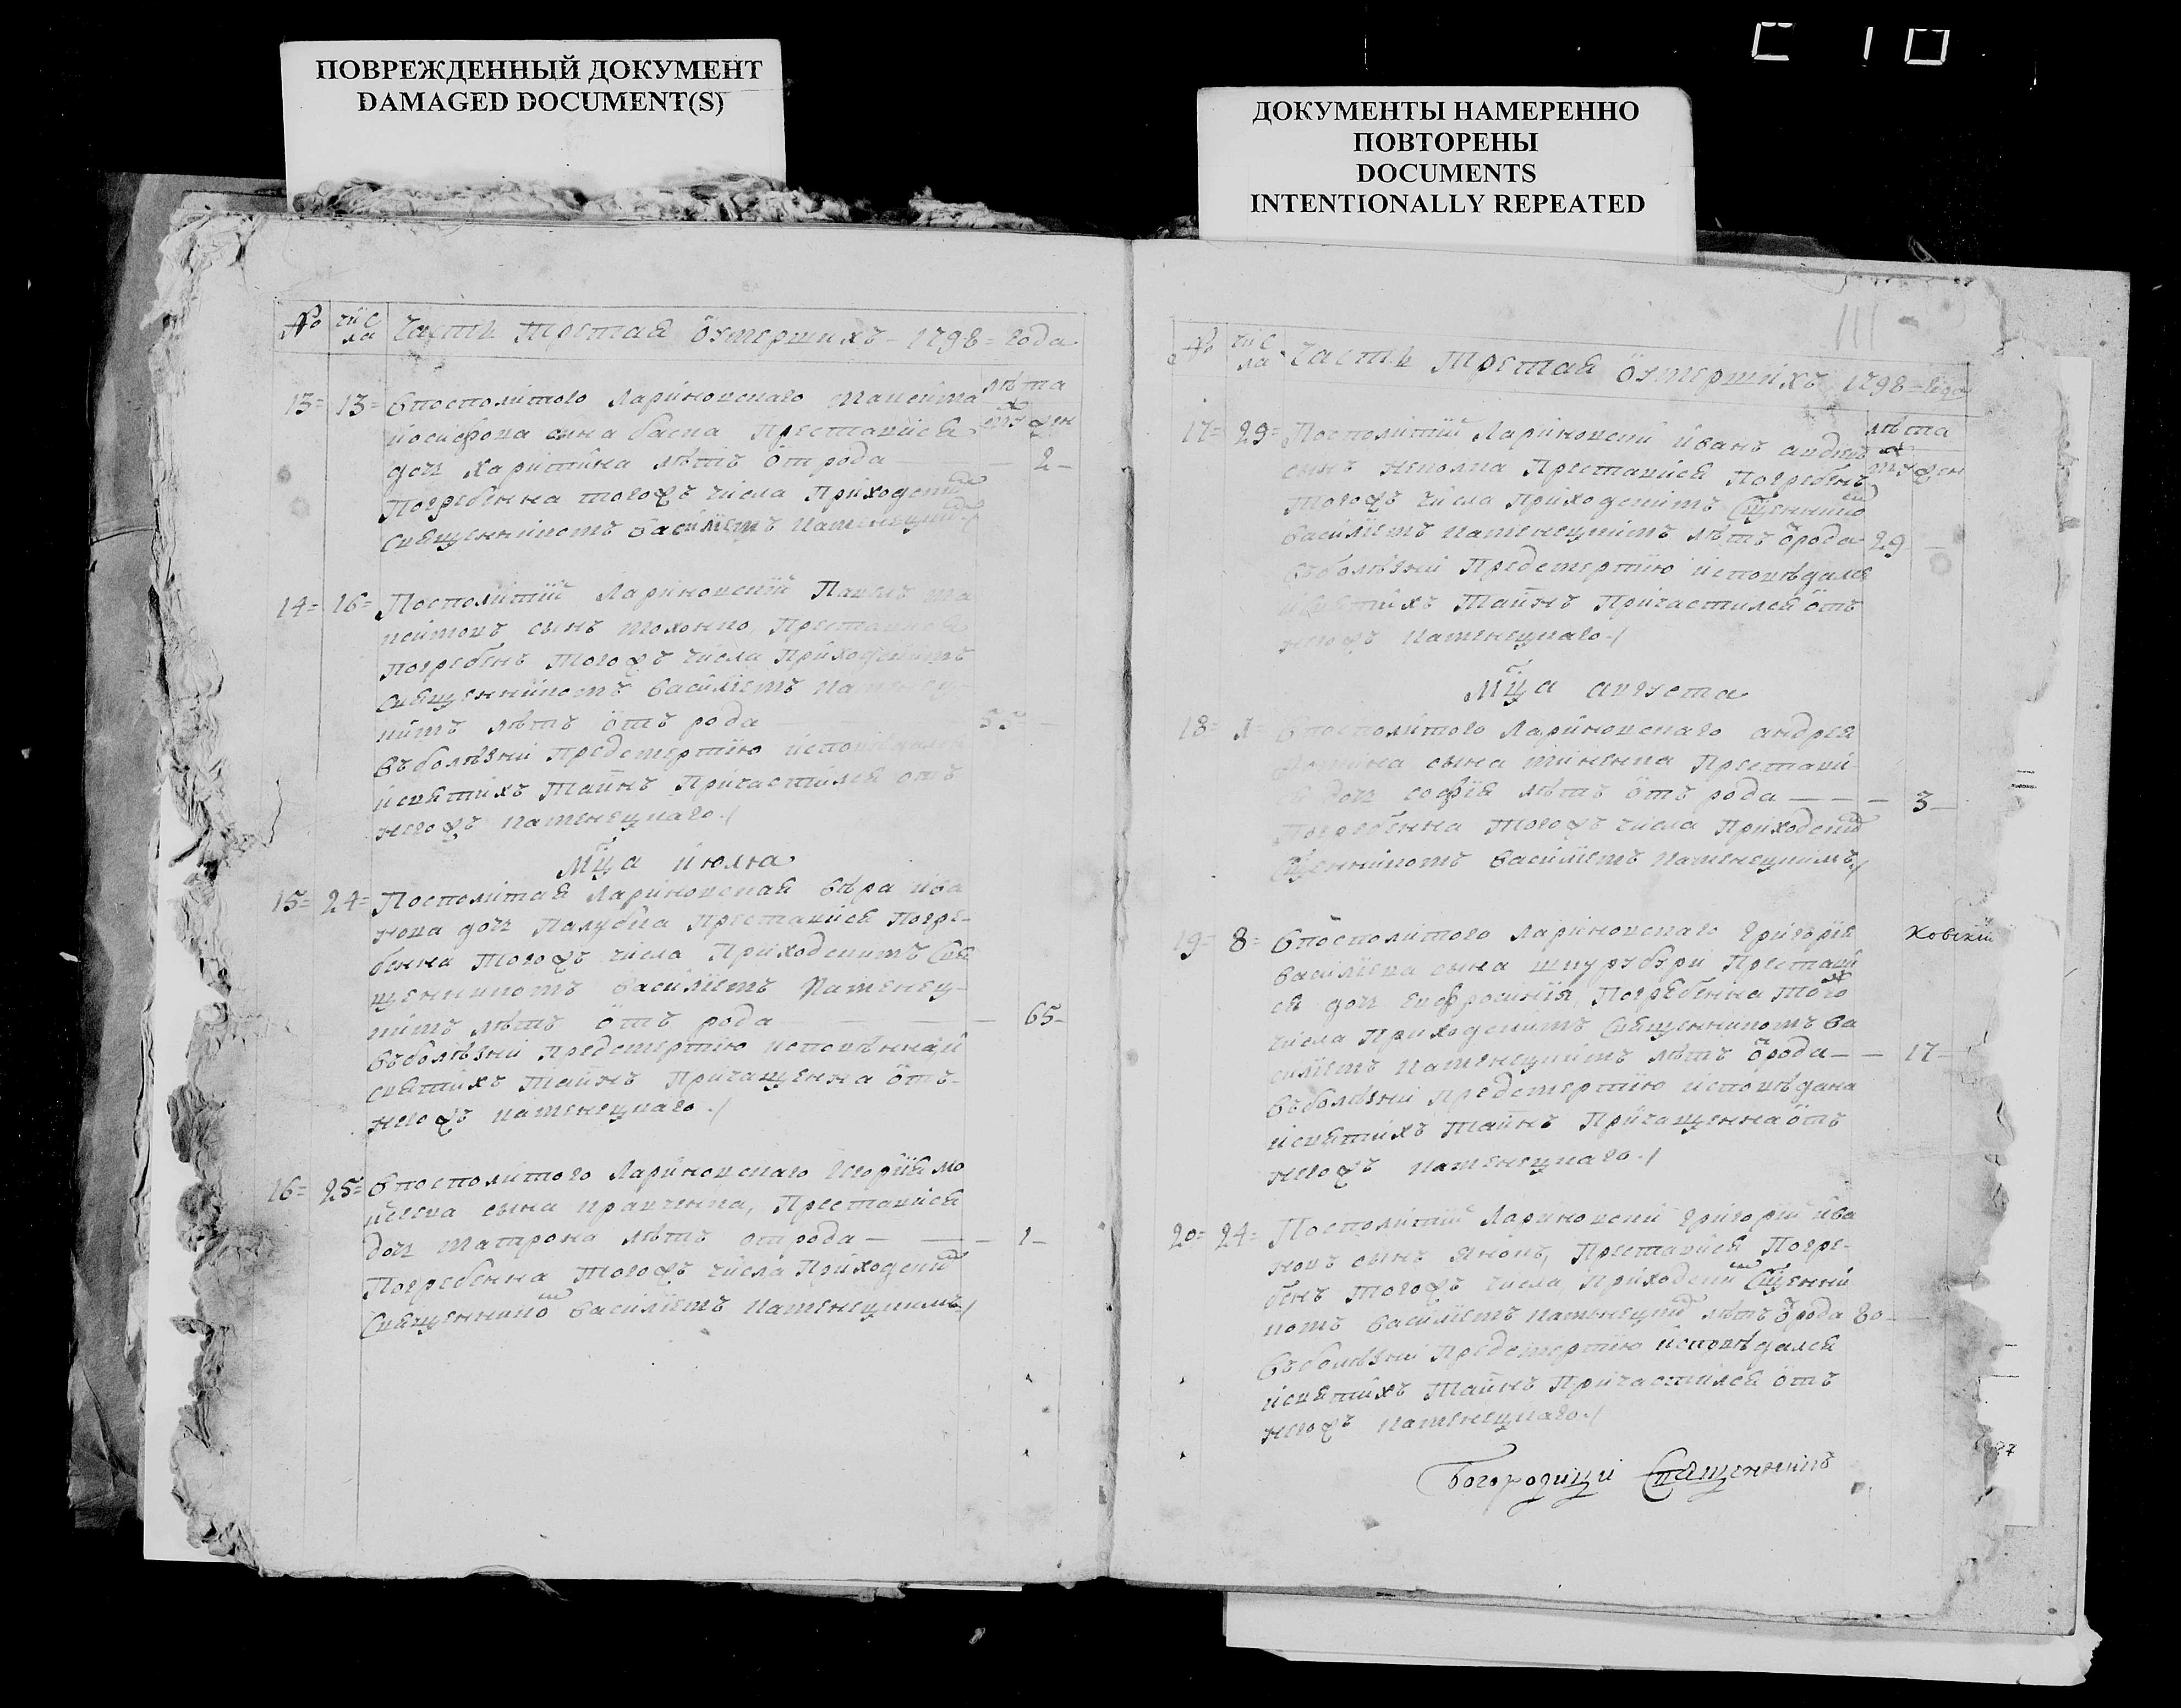 ПОВРЕЖДЕННЫЙ ДОКУМЕНТ
DAMAGED DOCUMENT(S)
ДОКУМЕНТЫ НАМЕРЕННО
ПОВТОРЕНЫ
DOCUMENTS
INTENTIONALLY REPEATED
№ числа Часть третая ѡумершихъ 1798 = года
лѣта
муж жен
13 = 13 = Упосполитого Лариновскаго
сына баска преставися
дочь харитина лѣтъ от рода — 2 —
Погребенна тогожъ числа приходским
священникомъ василіемъ каменецким
14 = 16 = Посполитій Лариновскій Павелъ
сынъ преставися
погребенъ тогожъ числа приходскимъ
священникомъ василіемъ каменец-
кимъ лѣтъ ѿтъ рода — 55 —
Въболѣзни предсмертію исповѣдался
исвятихъ таинъ причастился отъ
негожъ каменецкаго
Мца июля
15 = 24 = Посполитая Лариновская вѣра ива
нова дочь преставися погре-
бенна тогожъ числа приходскимъ свя
щенникомъ василіемъ каменец-
кимъ лѣтъ ѿтъ рода — 65 —
Въболѣзни предсмертію
святихъ таинъ причащенна ѿтъ
негожъ каменецкаго
16 = 25 = Упосполитого Лариновскаго мо
исеева сына кравченка, преставися
дочь матрона лѣтъ отрода — 1 —
Погребенна тогожъ числа приходским
священнико василіемъ каменецкимъ
111
№ числа Часть третая ѡумершихъ 1798 = года
лѣта
муж жен
17 = 29 = Посполитій Лариновскій иванъ
сынъ преставися погребенъ
тогожъ числа приходскимъ сщеннико
василіемъ каменецкимъ лѣтъ ѿрода 29 —
въболѣзни предсмертію исповѣдался
исвятихъ таинъ причастился ѿтъ
негожъ каменецкаго
Мца августа
18 = 1 = Упосполитого Лариновскаго андрея
сына престави
ся дочь софія лѣтъ ѿтъ рода — 3 —
погребенна тогожъ числа приходским
сщенникомъ василіемъ каменецкимъ
19 = 8 = Упосполитого Лариновскаго григорія
василіева сына престави
ся дочь евфросинія погребенна того
числа приходскимъ священникомъ ва
силіемъ каменецкимъ лѣтъ ѿрода — 17 —
въболѣзни предсмертію исповѣдана
исвятихъ таинъ причащенна ѿтъ
негожъ каменецкаго
ховскій
20 = 24 = Посполитій Лариновскій григорій ива
новъ сынъ преставися погре-
бенъ тогожъ числа приходским сщенни
комъ василіемъ каменецким лѣтъ ѿрода 80 —
въболѣзни предсмертію исповѣдался
исвятихъ таинъ причастился ѿтъ
негожъ каменецкаго
Богородицкій Священникъ